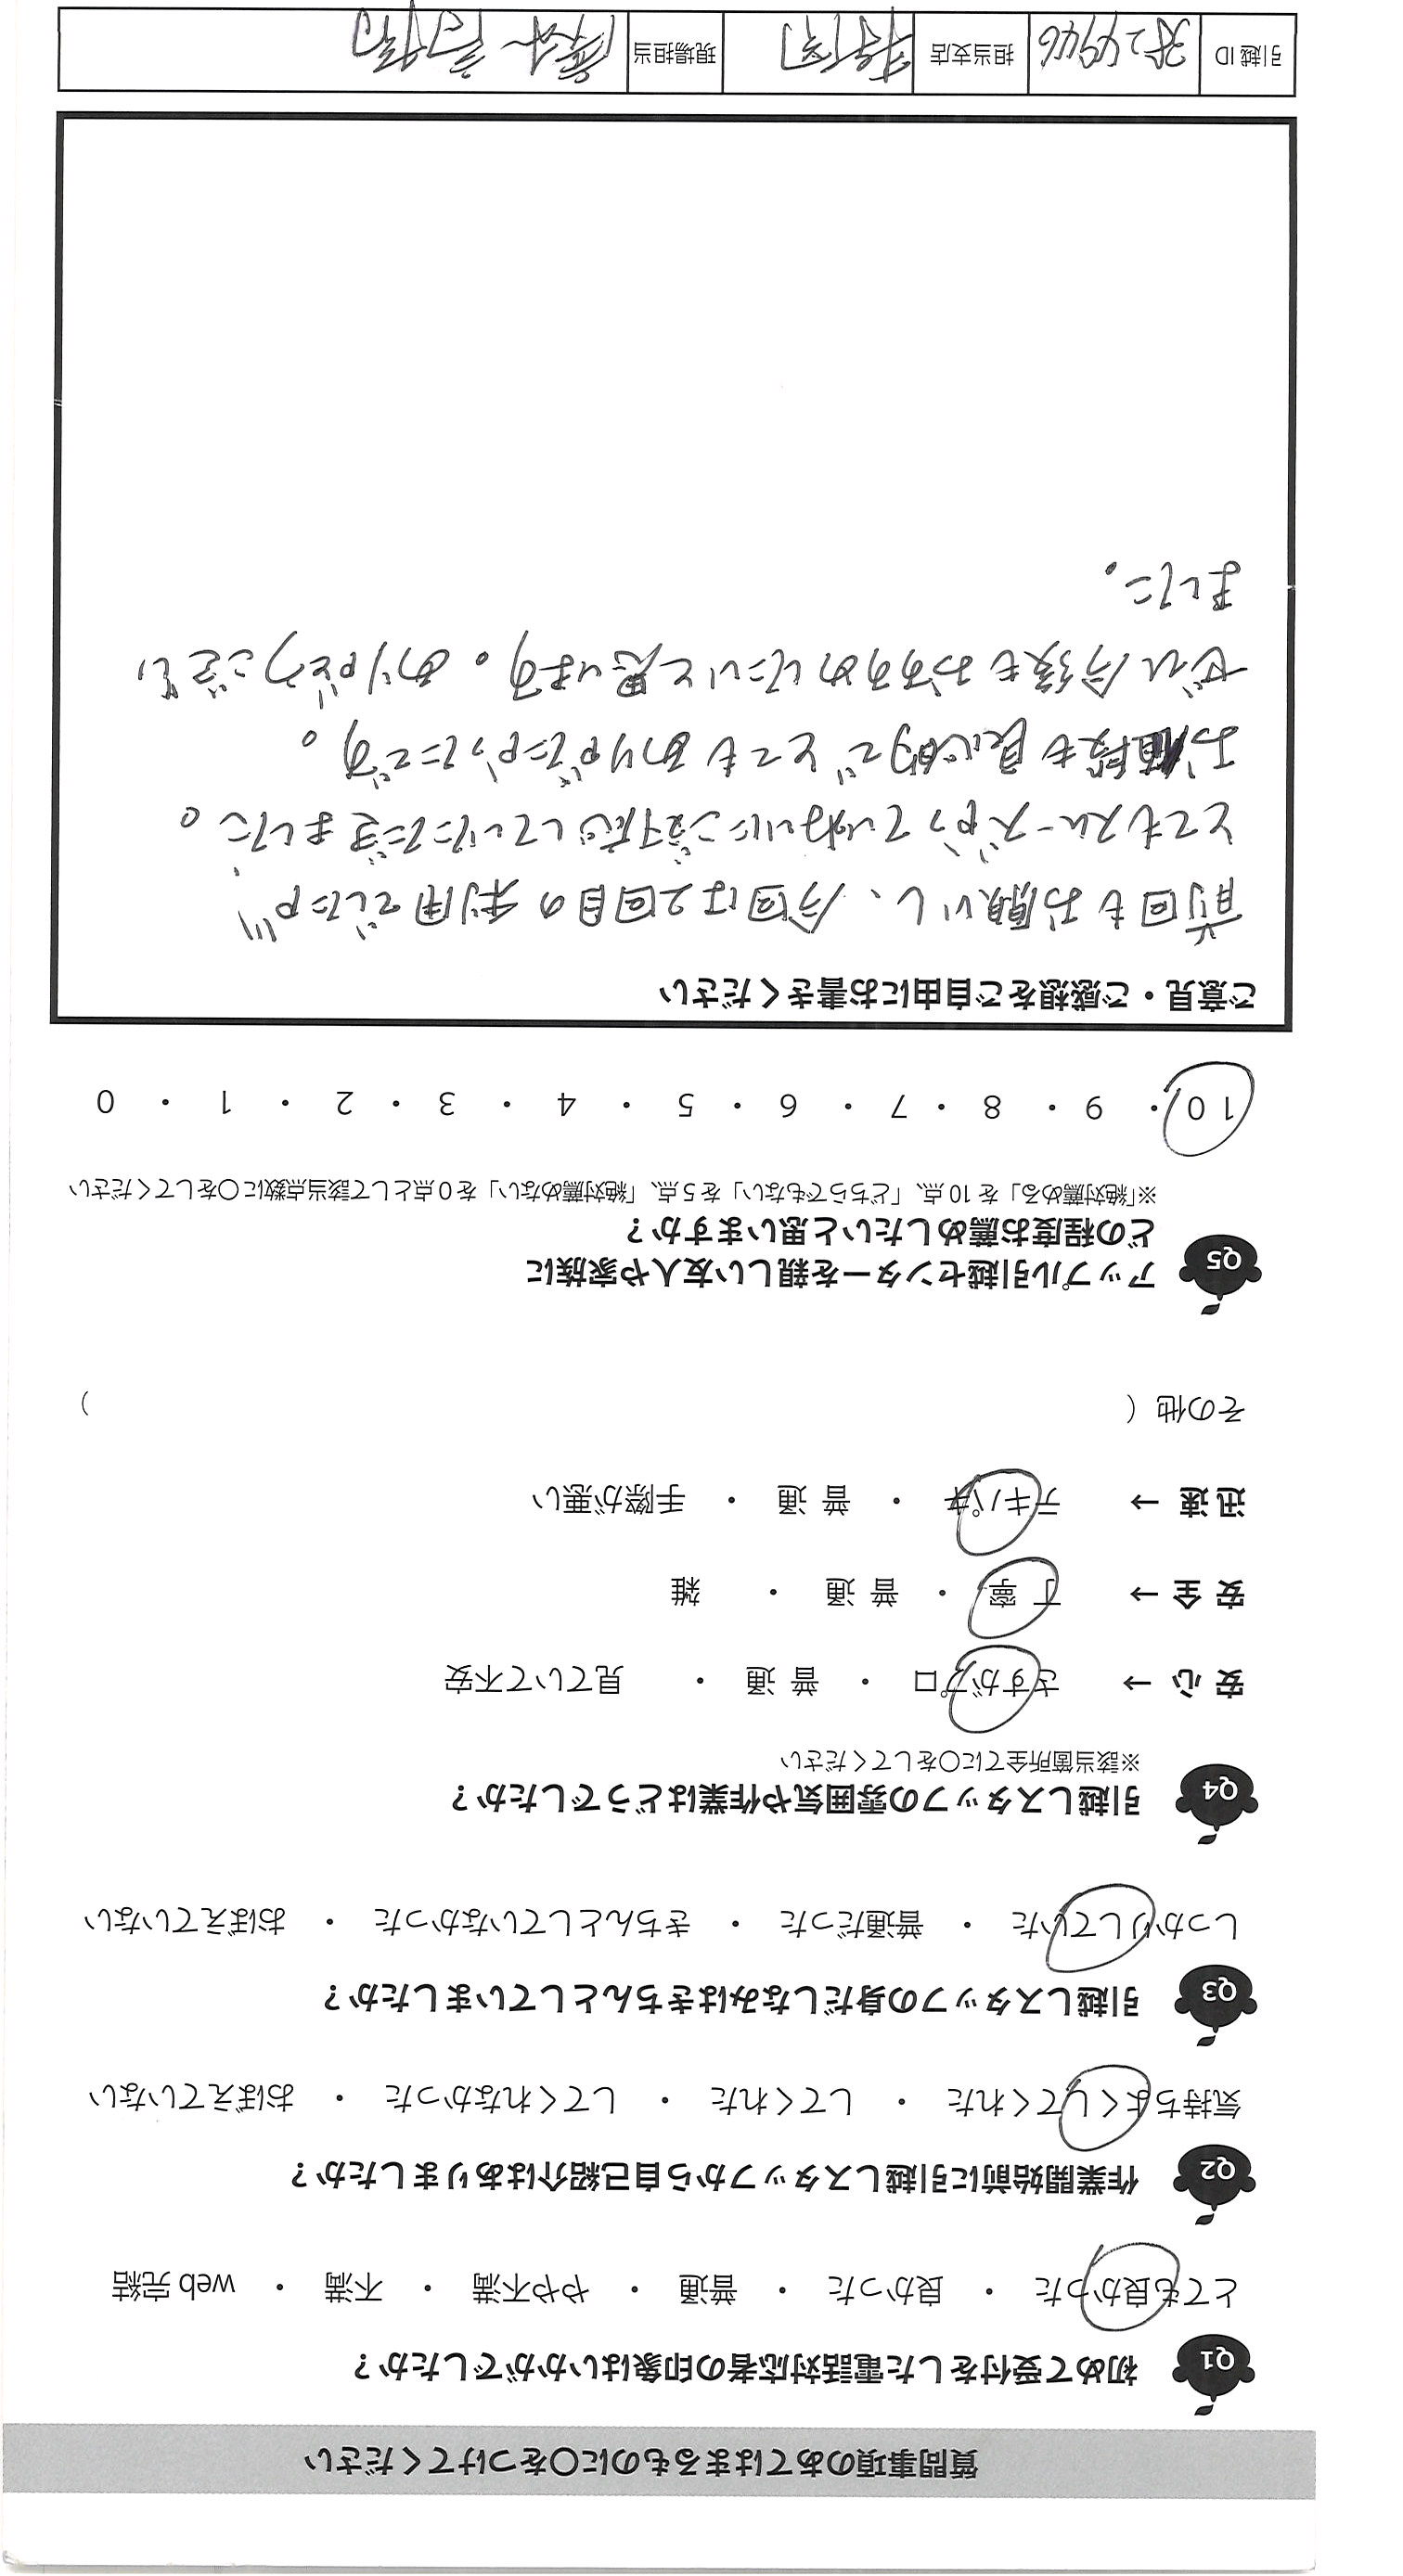 質問事項のあてはまるものに〇をつけてください
Q1 初めて受付をした電話対応者の印象はいかがでしたか？
とても良かった ・ 良かった ・ 普通 ・ やや不満 ・ 不満 ・ web 完結
Q2 作業開始前に引越しスタッフから自己紹介はありましたか？
気持ちよくしてくれた ・ してくれた ・ してくれなかった ・ おぼえていない
Q3 引越しスタッフの身だしなみはきちんとしていましたか？
しっかりしていた ・ 普通だった ・ きちんとしていなかった ・ おぼえていない
Q4 引越しスタッフの雰囲気や作業はどうでしたか？
※該当箇所全てに〇をしてください
安心 → さすがプロ ・ 普通 ・ 見ていて不安
安全 → 丁寧 ・ 普通 ・ 雑
迅速 → テキパキ ・ 普通 ・ 手際が悪い
その他（ ）
Q5 アップル引越センターを親しい友人や家族に
どの程度お薦めしたいと思いますか？
※「絶対薦める」を 10 点、「どちらでもない」を 5 点、「絶対薦めない」を 0 点として該当点数に〇をしてください
10 ・ 9 ・ 8 ・ 7 ・ 6 ・ 5 ・ 4 ・ 3 ・ 2 ・ 1 ・ 0
ご意見・ご感想をご自由にお書きください
前回もお願いし、今回は2回目の利用でしたが、
とてもスムーズかつていねいにご対応していただきました。
お値段も良心的でとてもありがたかったです。
ぜひ今後もおすすめしたいと思います。ありがとうござい
ました。
引越 ID 担当支店 現場担当